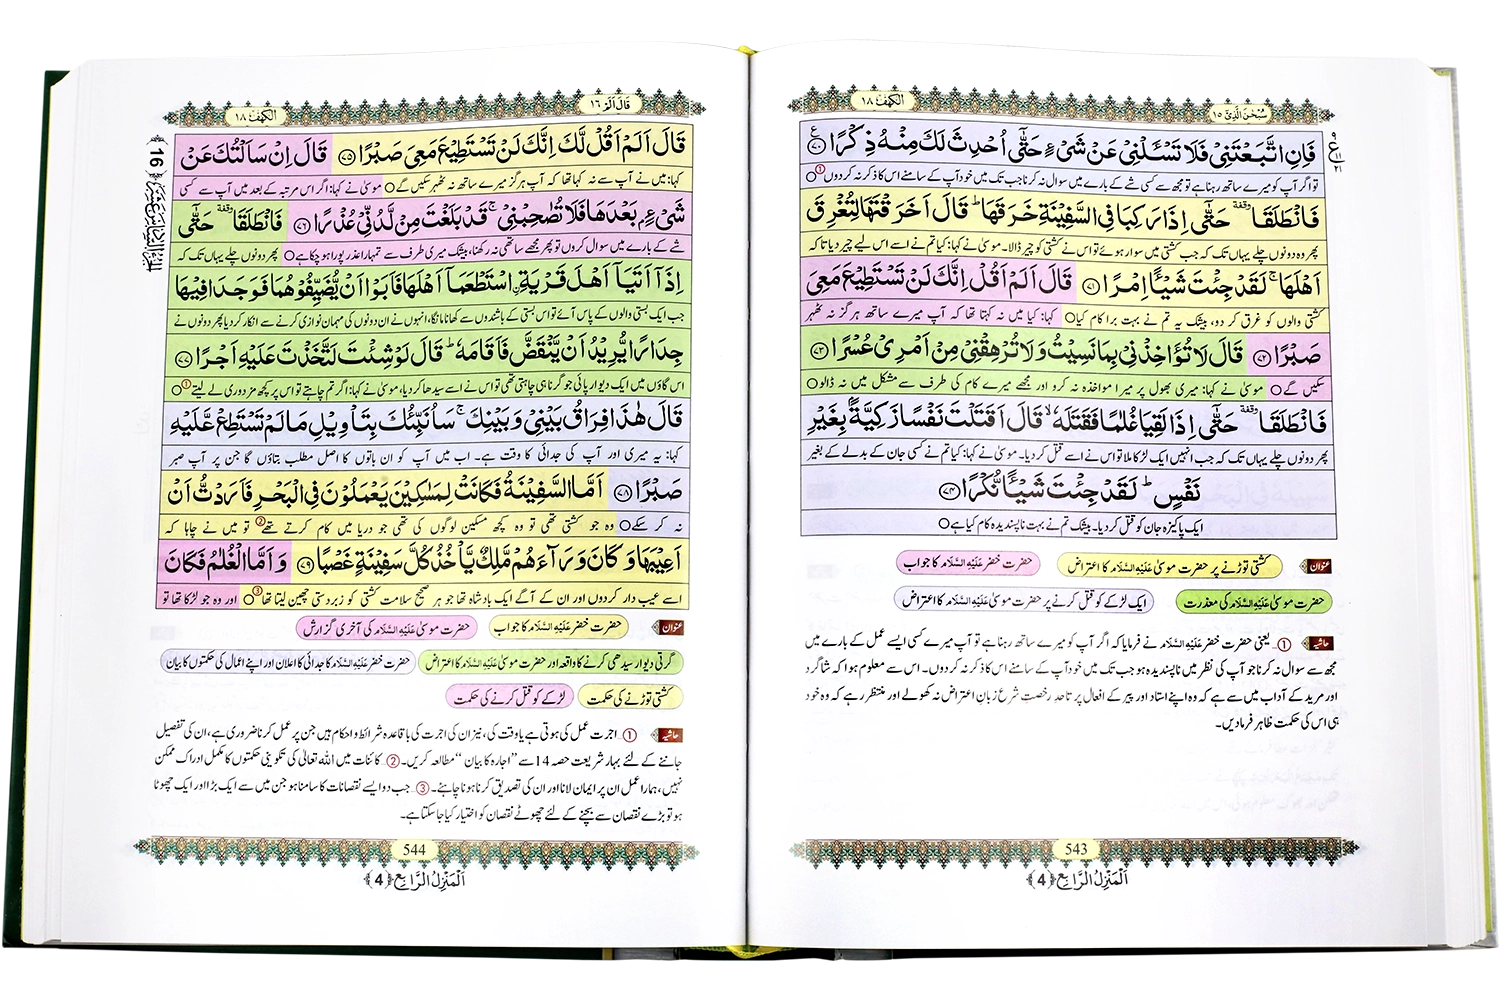 سُبْحٰنَ الَّذِیْ ۱۵
الکہف ۱۸
فَاِنِ اتَّبَعْتَنِیْ فَلَا تَسْـَٔلْنِیْ عَنْ شَیْءٍ حَتّٰۤی اُحْدِثَ لَكَ مِنْهُ ذِكْرًا ﴿۷۰﴾
تو اگر آپ کو میرے ساتھ رہنا ہے تو مجھ سے کسی شے کے بارے میں سوال نہ کرنا جب تک میں خود آپ کے سامنے اس کا ذکر نہ کردوں ① ○
فَانْطَلَقَا وقفة حَتّٰۤی اِذَا رَكِبَا فِی السَّفِیْنَةِ خَرَقَهَا ؕ قَالَ اَخَرَقْتَهَا لِتُغْرِقَ
پھر وہ دونوں چلے یہاں تک کہ جب کشتی میں سوار ہوئے تو اس نے کشتی کو چیر ڈالا۔ موسیٰ نے کہا: کیا تم نے اسے اس لیے چیر دیا تاکہ
اَهْلَهَا ۚ لَقَدْ جِئْتَ شَیْـًٔا اِمْرًا ﴿۷۱﴾ قَالَ اَلَمْ اَقُلْ اِنَّكَ لَنْ تَسْتَطِیْعَ مَعِیَ
کشتی والوں کو غرق کر دو، بیشک یہ تم نے بہت برا کام کیا ○ کہا: کیا میں نہ کہتا تھا کہ آپ میرے ساتھ ہرگز نہ ٹھہر
صَبْرًا ﴿۷۲﴾ قَالَ لَا تُؤَاخِذْنِیْ بِمَا نَسِیْتُ وَ لَا تُرْهِقْنِیْ مِنْ اَمْرِیْ عُسْرًا ﴿۷۳﴾
سکیں گے ○ موسیٰ نے کہا: میری بھول پر میرا مواخذہ نہ کرو اور مجھے میرے کام کی طرف سے مشکل میں نہ ڈالو ○
فَانْطَلَقَا وقفة حَتّٰۤی اِذَا لَقِیَا غُلٰمًا فَقَتَلَهٗ ۙ قَالَ اَقَتَلْتَ نَفْسًا زَكِیَّةًۢ بِغَیْرِ
پھر دونوں چلے یہاں تک کہ جب انہیں ایک لڑکا ملا تو اس نے اسے قتل کر دیا۔ موسیٰ نے کہا: کیا تم نے کسی جان کے بدلے کے بغیر
نَفْسٍ ؕ لَقَدْ جِئْتَ شَیْـًٔا نُّكْرًا ﴿۷۴﴾
ایک پاکیزہ جان کو قتل کر دیا۔ بیشک تم نے بہت ناپسندیدہ کام کیا ہے ○
عنوان کشتی توڑنے پر حضرت موسیٰ عَلَیْهِ السَّلَام کا اعتراض حضرت خضر عَلَیْهِ السَّلَام کا جواب
حضرت موسیٰ عَلَیْهِ السَّلَام کی معذرت ایک لڑکے کو قتل کرنے پر حضرت موسیٰ عَلَیْهِ السَّلَام کا اعتراض
حاشیہ ①… یعنی حضرت خضر عَلَیْهِ السَّلَام نے فرمایا کہ اگر آپ کو میرے ساتھ رہنا ہے تو آپ میرے کسی ایسے عمل کے بارے میں
مجھ سے سوال نہ کرنا جو آپ کی نظر میں ناپسندیدہ ہو جب تک میں خود آپ کے سامنے اس کا ذکر نہ کردوں۔ اس سے معلوم ہوا کہ شاگرد
اور مرید کے آداب میں سے ہے کہ وہ اپنے استاد اور پیر کے افعال پر تاحدِ رخصتِ شرع زبانِ اعتراض نہ کھولے اور منتظر رہے کہ وہ خود
ہی اس کی حکمت ظاہر فرمادیں۔
543
اَلْمَنْزِلُ الرَّابِعُ ﴿4﴾
قَالَ اَلَمْ ۱۶
الکہف ۱۸
16
قَالَ اَلَمْ اَقُلْ لَّكَ اِنَّكَ لَنْ تَسْتَطِیْعَ مَعِیَ صَبْرًا ﴿۷۵﴾ قَالَ اِنْ سَاَلْتُكَ عَنْ
کہا: میں نے آپ سے نہ کہا تھا کہ آپ ہرگز میرے ساتھ نہ ٹھہر سکیں گے ○ موسیٰ نے کہا: اگر اس مرتبہ کے بعد میں آپ سے کسی
شَیْءٍۭ بَعْدَهَا فَلَا تُصٰحِبْنِیْ ۚ قَدْ بَلَغْتَ مِنْ لَّدُنِّیْ عُذْرًا ﴿۷۶﴾ فَانْطَلَقَا وقفة حَتّٰۤی
شے کے بارے میں سوال کروں تو پھر مجھے ساتھی نہ رکھنا، بیشک میری طرف سے تمہارا عذر پورا ہو چکا ہے ○ پھر دونوں چلے یہاں تک کہ
اِذَاۤ اَتَیَاۤ اَهْلَ قَرْیَةِ ِۨاسْتَطْعَمَاۤ اَهْلَهَا فَاَبَوْا اَنْ یُّضَیِّفُوْهُمَا فَوَجَدَا فِیْهَا
جب ایک بستی والوں کے پاس آئے تو اس بستی کے باشندوں سے کھانا مانگا، انہوں نے ان دونوں کی مہمان نوازی کرنے سے انکار کر دیا پھر دونوں نے
جِدَارًا یُّرِیْدُ اَنْ یَّنْقَضَّ فَاَقَامَهٗ ؕ قَالَ لَوْ شِئْتَ لَتَّخَذْتَ عَلَیْهِ اَجْرًا ﴿۷۷﴾
اس گاؤں میں ایک دیوار پائی جو گرنا ہی چاہتی تھی تو اس نے اسے سیدھا کر دیا، موسیٰ نے کہا: اگر تم چاہتے تو اس پر کچھ مزدوری لے لیتے ① ○
قَالَ هٰذَا فِرَاقُ بَیْنِیْ وَ بَیْنِكَ ۚ سَاُنَبِّئُكَ بِتَاْوِیْلِ مَا لَمْ تَسْتَطِعْ عَّلَیْهِ
کہا: یہ میری اور آپ کی جدائی کا وقت ہے۔ اب میں آپ کو ان باتوں کا اصل مطلب بتاؤں گا جن پر آپ صبر
صَبْرًا ﴿۷۸﴾ اَمَّا السَّفِیْنَةُ فَكَانَتْ لِمَسٰكِیْنَ یَعْمَلُوْنَ فِی الْبَحْرِ فَاَرَدْتُّ اَنْ
نہ کر سکے ○ وہ جو کشتی تھی تو وہ کچھ مسکین لوگوں کی تھی جو دریا میں کام کرتے تھے ② تو میں نے چاہا کہ
اَعِیْبَهَا وَ كَانَ وَرَآءَهُمْ مَّلِكٌ یَّاْخُذُ كُلَّ سَفِیْنَةٍ غَصْبًا ﴿۷۹﴾ وَ اَمَّا الْغُلٰمُ فَكَانَ
اسے عیب دار کردوں اور ان کے آگے ایک بادشاہ تھا جو ہر صحیح سلامت کشتی کو زبردستی چھین لیتا تھا ③ ○ اور وہ جو لڑکا تھا تو
عنوان حضرت خضر عَلَیْهِ السَّلَام کا جواب حضرت موسیٰ عَلَیْهِ السَّلَام کی آخری گزارش
گرتی دیوار سیدھی کرنے کا واقعہ اور حضرت موسیٰ عَلَیْهِ السَّلَام کا اعتراض حضرت خضر عَلَیْهِ السَّلَام کا جدائی کا اعلان اور اپنے اعمال کی حکمتوں کا بیان
کشتی توڑنے کی حکمت لڑکے کو قتل کرنے کی حکمت
حاشیہ ①… اجرت عمل کی ہوتی ہے یا وقت کی، نیز ان کی اجرت کی باقاعدہ شرائط و احکام ہیں جن پر عمل کرنا ضروری ہے، ان کی تفصیل
جاننے کے لئے بہار شریعت حصہ 14 سے ”اجارہ کا بیان“ مطالعہ کریں۔ ②… کائنات میں اللہ تعالیٰ کی تکوینی حکمتوں کا مکمل ادراک ممکن
نہیں، ہمارا عمل ان پر ایمان لانا اور ان کی تصدیق کرنا ہونا چاہئے۔ ③… جب دو ایسے نقصانات کا سامنا ہو جن میں سے ایک بڑا اور ایک چھوٹا
ہو تو بڑے نقصان سے بچنے کے لئے چھوٹے نقصان کو اختیار کیا جاسکتا ہے۔
544
اَلْمَنْزِلُ الرَّابِعُ ﴿4﴾